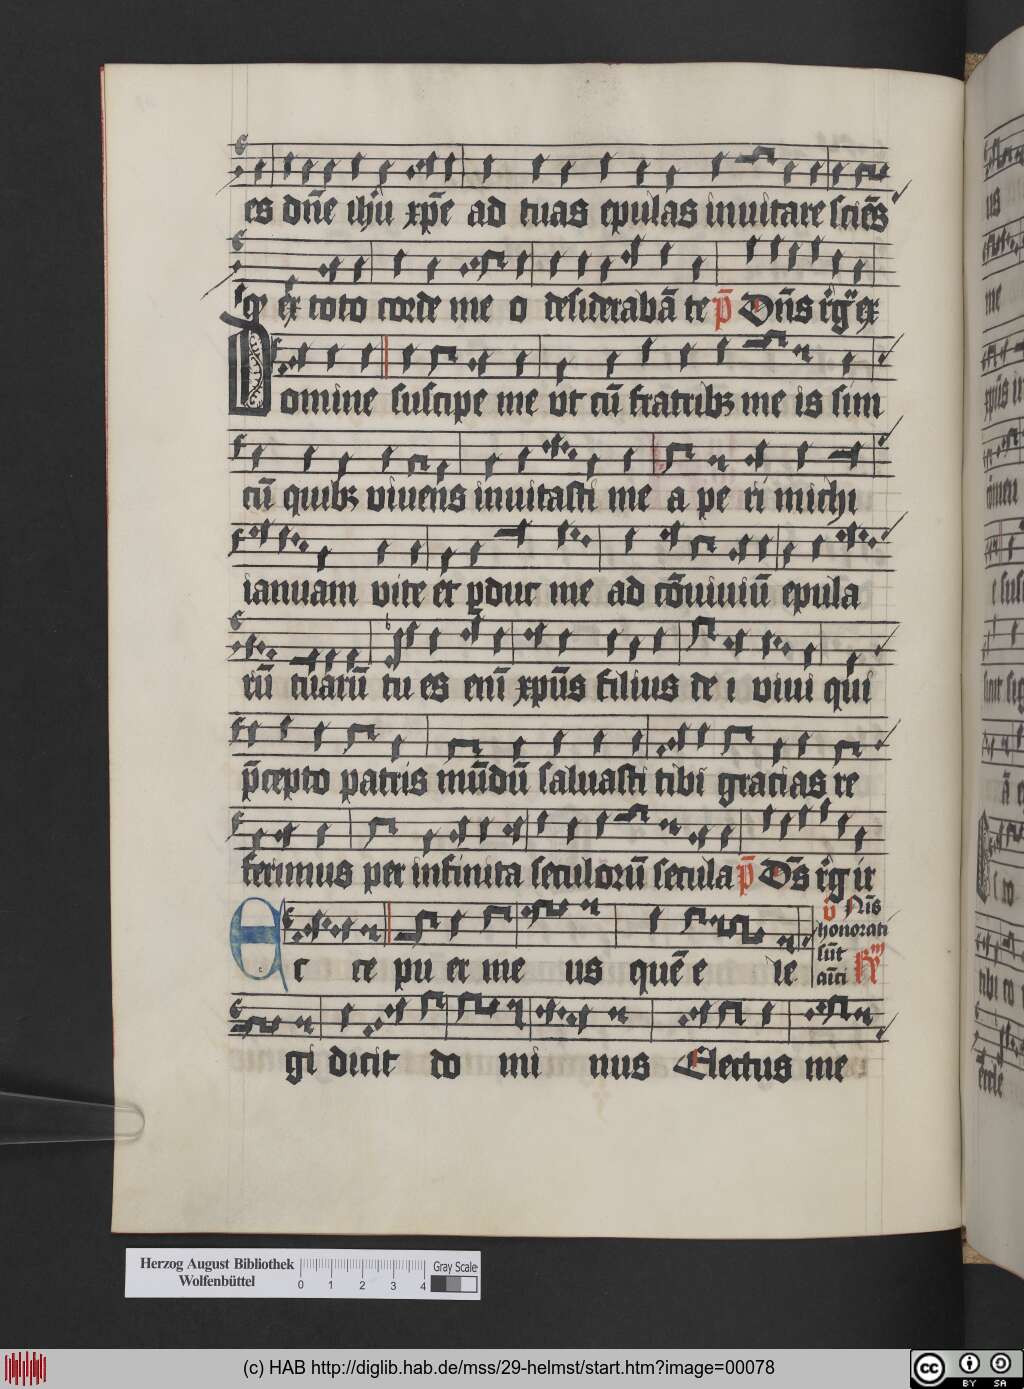 es dñe ihũ xp̃e ad tuas epulas inuitare sciẽs
qꝛ ex toto corde me o desiderabã te p̃ Dñs rg̃ ex
Domine suscipe me vt cũ fratribꝫ me is sim
cũ quibꝫ viuens inuitasti me a pe ri michi
ianuam vite et ꝑduc me ad cõuiuiũ epula
rũ tuarũ tu es enĩ xpũs filius de i viui qui
p̃cepto patris mũdũ saluasti tibi gracias re
ferimus per infinita seculorũ secula p̃ Dñs rg̃ ir
v̄ Nĩs
honorati
sũt
aĩci Rm
Ec ce pu er me us quẽ e le
gi dicit do mi nus Electus me
us
me
xpũs
e
ã
Herzog August Bibliothek
Wolfenbüttel
0 1 2 3 4
Gray Scale
(c) HAB http://diglib.hab.de/mss/29-helmst/start.htm?image=00078
cc BY SA